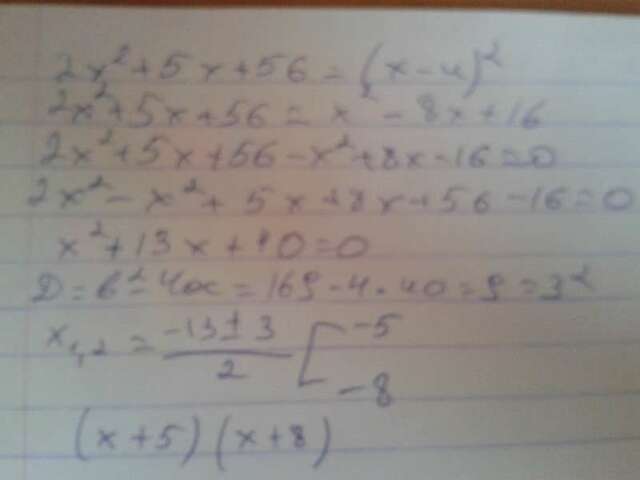 2x²+5x+56=(x-4)²
2x²+5x+56=x²-8x+16
2x²+5x+56-x²+8x-16=0
2x²-x²+5x+8x+56-16=0
x²+13x+40=0
D=b²-4ac=169-4·40=9=3²
x₁,₂=(-13±3)/2 [-5
-8
(x+5)(x+8)